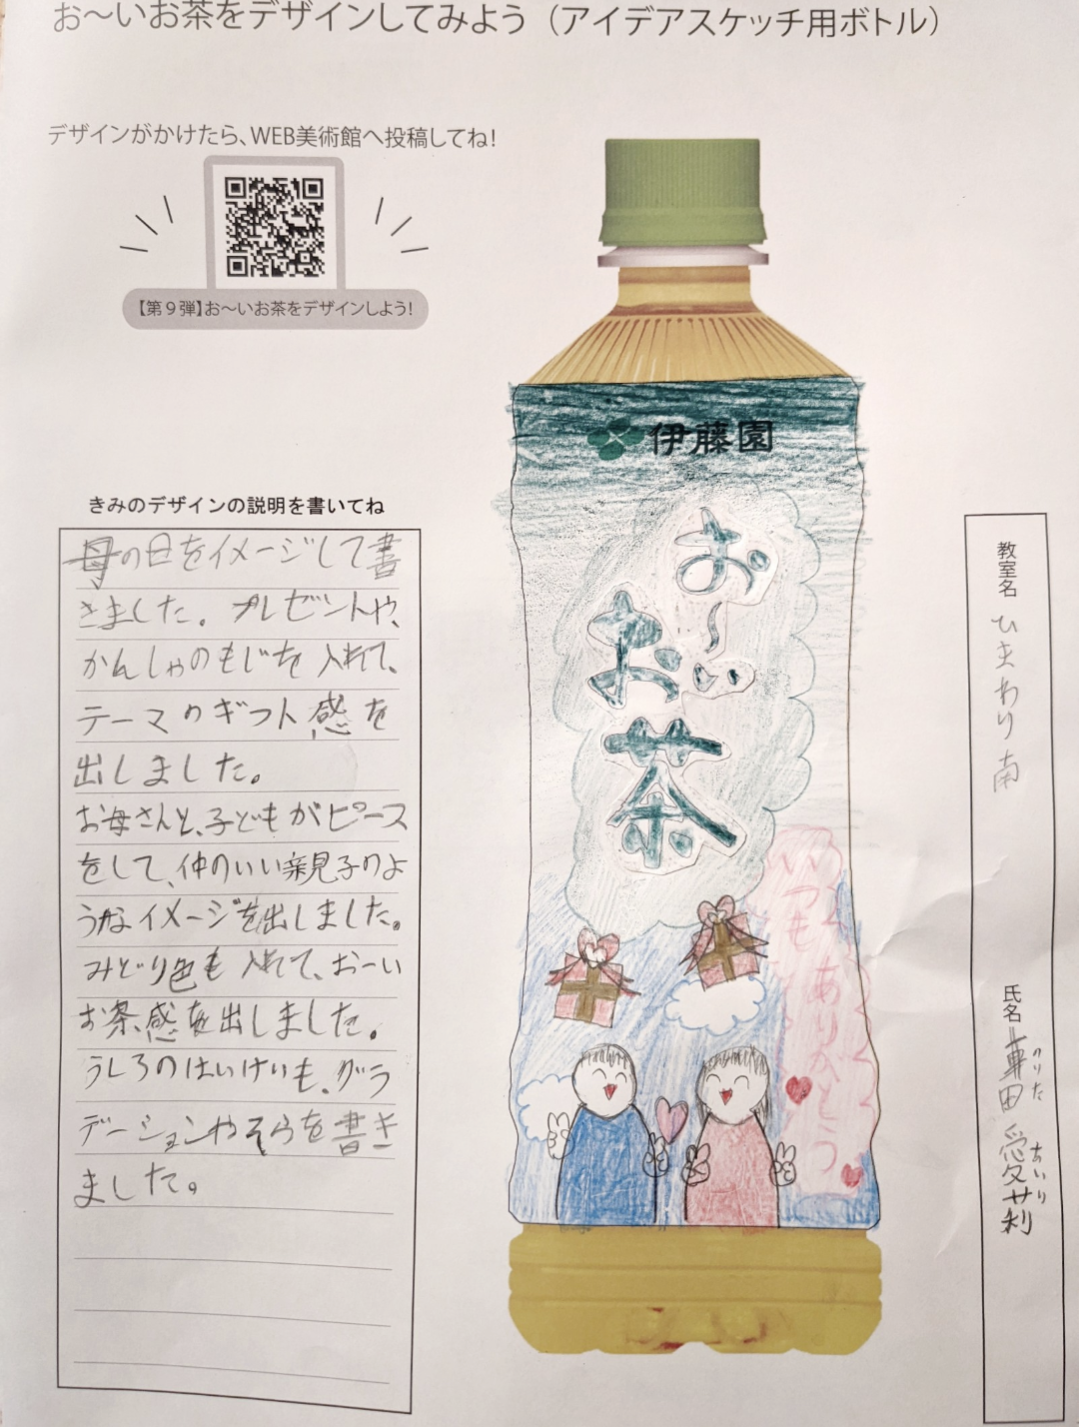 お〜いお茶をデザインしてみよう（アイデアスケッチ用ボトル）
デザインがかけたら、WEB美術館へ投稿してね！
【第９弾】お〜いお茶をデザインしよう！
きみのデザインの説明を書いてね
母の日をイメージして書
きました。プレゼントや、
かんしゃのもじを入れて、
テーマのギフト感を
出しました。
お母さんと、子どもがピース
をして、仲のいい親子のよ
うなイメージを出しました。
みどり色も入れて、おーい
お茶感を出しました。
うしろのはいけいも、グラ
デーションやそらを書き
ました。
伊藤園
お〜い
お茶
いつも
ありがとう
教室名 ひまわり南
氏名 田 愛莉
のりた あいり